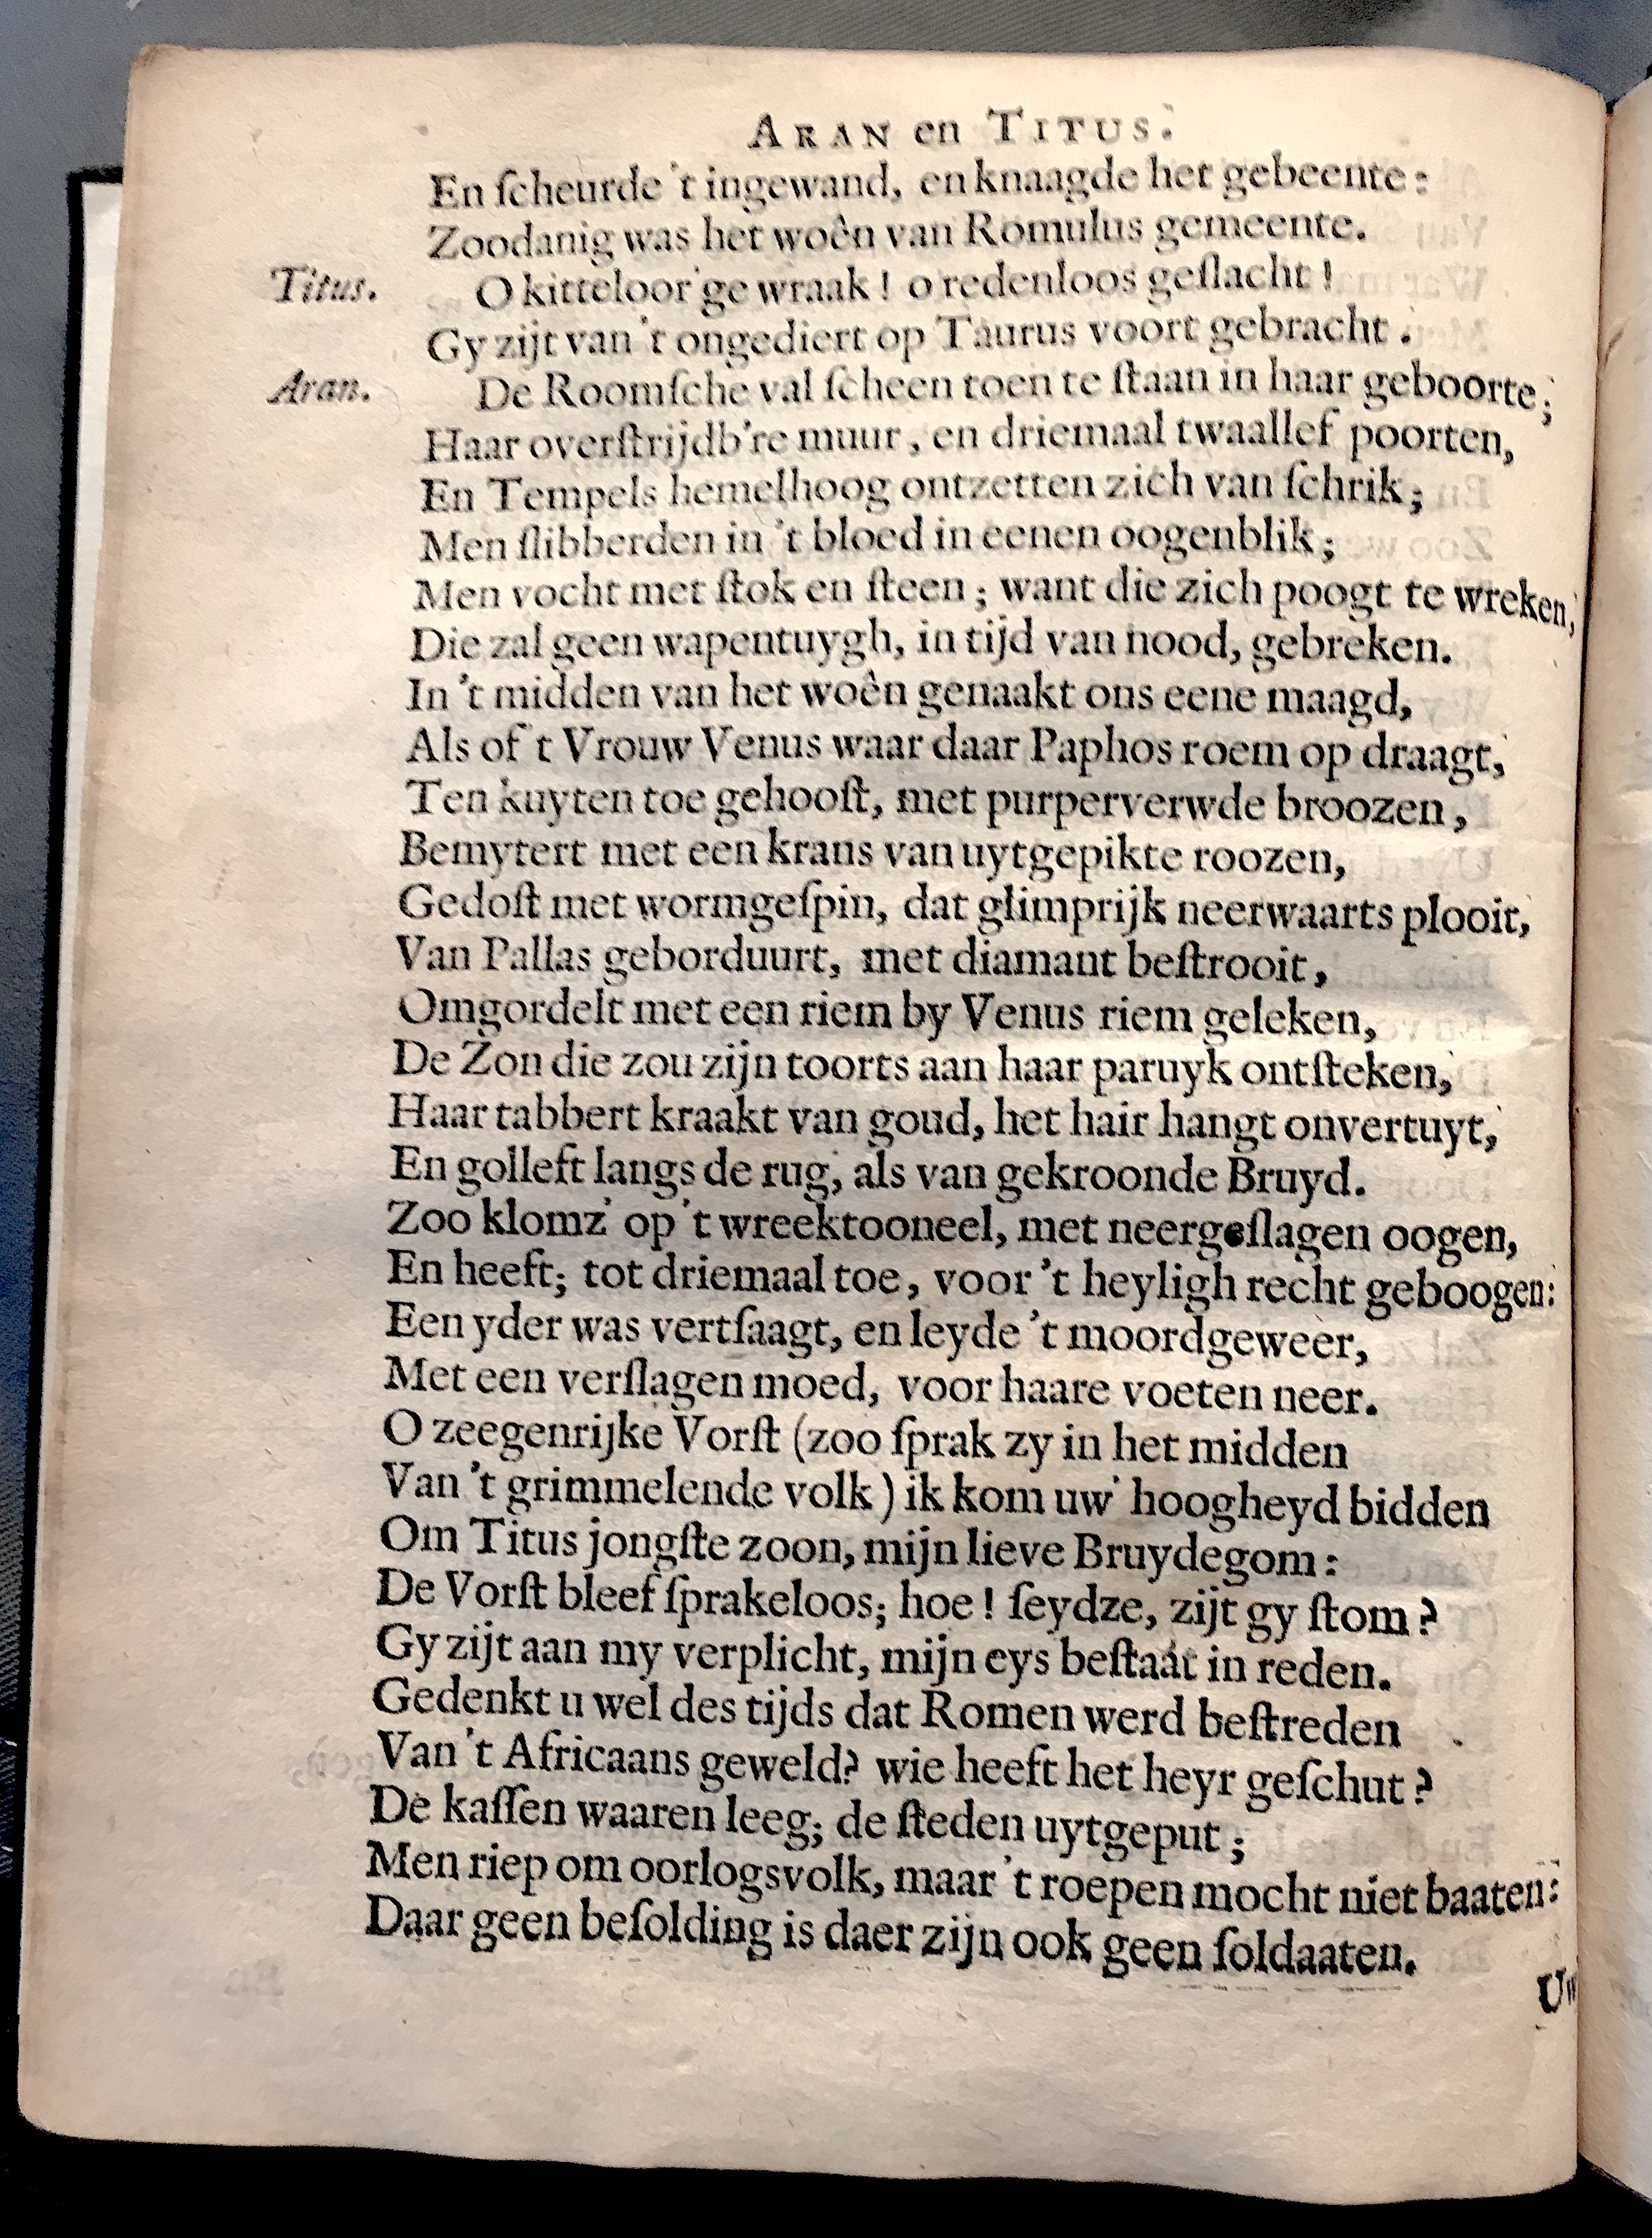 ARAN en TITUS.
En ſcheurde 't ingewand, en knaagde het gebeente:
Zoodanig was het woên van Romulus gemeente.
Titus. O kitteloor'ge wraak! o redenloos geſlacht!
Gy zijt van 't ongediert op Taurus voort gebracht.
Aran. De Roomſche val ſcheen toen te ſtaan in haar geboorte;
Haar overſtrijdb're muur, en driemaal twaallef poorten,
En Tempels hemelhoog ontzetten zich van ſchrik;
Men ſlibberden in 't bloed in eenen oogenblik;
Men vocht met ſtok en ſteen; want die zich poogt te wreken,
Die zal geen wapentuygh, in tijd van nood, gebreken.
In 't midden van het woên genaakt ons eene maagd,
Als of 't Vrouw Venus waar daar Paphos roem op draagt,
Ten kuyten toe gehooſt, met purperverwde broozen,
Bemytert met een krans van uytgepikte roozen,
Gedoſt met wormgeſpin, dat glimprijk neerwaarts plooit,
Van Pallas geborduurt, met diamant beſtrooit,
Omgordelt met een riem by Venus riem geleken,
De Zon die zou zijn toorts aan haar paruyk ontſteken,
Haar tabbert kraakt van goud, het hair hangt onvertuyt,
En golleft langs de rug, als van gekroonde Bruyd.
Zoo klomz' op 't wreektooneel, met neergeſlagen oogen,
En heeft; tot driemaal toe, voor 't heyligh recht geboogen:
Een yder was vertſaagt, en leyde 't moordgeweer,
Met een verſlagen moed, voor haare voeten neer.
O zeegenrijke Vorſt (zoo ſprak zy in het midden
Van 't grimmelende volk) ik kom uw' hoogheyd bidden
Om Titus jongſte zoon, mijn lieve Bruydegom:
De Vorſt bleef ſprakeloos; hoe! ſeydze, zijt gy ſtom?
Gy zijt aan my verplicht, mijn eys beſtaat in reden.
Gedenkt u wel des tijds dat Romen werd beſtreden
Van 't Africaans geweld? wie heeft het heyr geſchut?
De kaſſen waaren leeg; de ſteden uytgeput;
Men riep om oorlogsvolk, maar 't roepen mocht niet baaten:
Daar geen beſolding is daer zijn ook geen ſoldaaten.
Uw